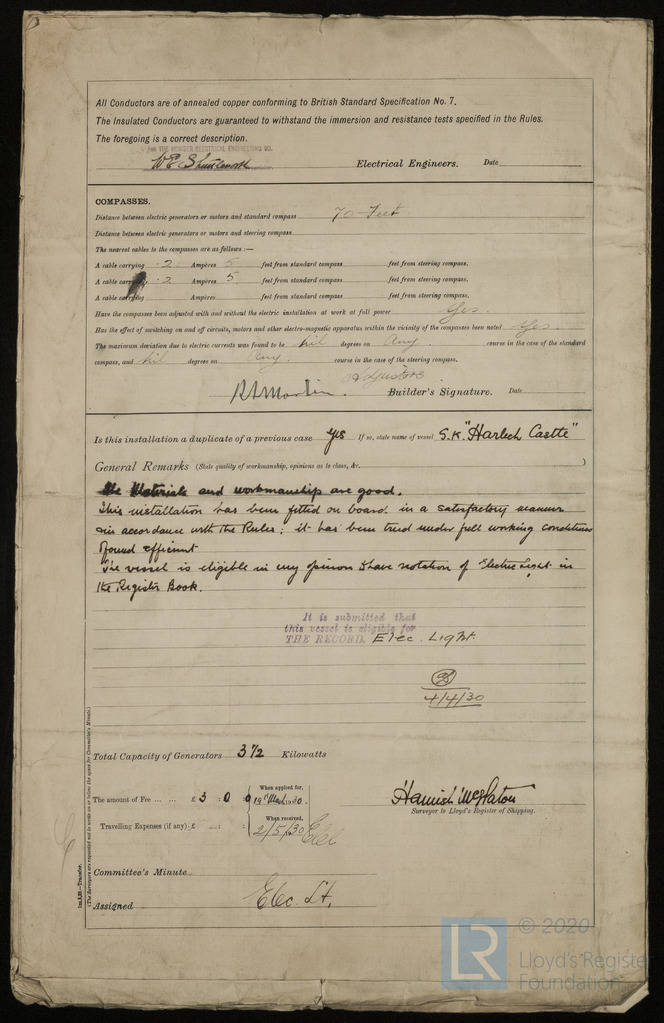 All Conductors are of annealed copper conforming to British Standard Specification No. 7.
The Insulated Conductors are guaranteed to withstand the immersion and resistance tests specified in the Rules.
The foregoing is a correct description.
FOR THE HUMBER ELECTRICAL ENGINEERING CO.
W E Shuttleworth Electrical Engineers. Date
COMPASSES.
Distance between electric generators or motors and standard compass 70 Feet
Distance between electric generators or motors and steering compass
The nearest cables to the compasses are as follows :—
A cable carrying .2 Ampères 5 feet from standard compass feet from steering compass.
A cable carrying .2 Ampères 5 feet from standard compass feet from steering compass.
A cable carrying Ampères feet from standard compass feet from steering compass.
Have the compasses been adjusted with and without the electric installation at work at full power Yes.
Has the effect of switching on and off circuits, motors and other electro-magnetic apparatus within the vicinity of the compasses been noted Yes.
The maximum deviation due to electric currents was found to be Nil degrees on Any. course in the case of the standard
compass, and Nil degrees on Any. course in the case of the steering compass.
Adjusters
Builder's Signature. Date
Is this installation a duplicate of a previous case Yes If so, state name of vessel S.K. "Harlech Castle"
General Remarks (State quality of workmanship, opinions as to class, &c. )
The Materials and workmanship are good.
This installation has been fitted on board in a satisfactory manner
in accordance with the Rules; it has been tried under full working conditions
found efficient
The vessel is eligible in my opinion to have notation of Electric Light in
the Register Book.
It is submitted that
this vessel is eligible for
THE RECORD. Elec. Light.
4/4/30
Total Capacity of Generators 3½ Kilowatts
The amount of Fee ... ... £ 3 : 0 : 0 When applied for, 19th March 1930.
Travelling Expenses (if any) £ : : When received, 2/5/30
Hamish McPhaton
Surveyor to Lloyd's Register of Shipping.
Committee's Minute
Assigned Elec. Lt.
Im.1,28.—Transfer.
(The Surveyors are requested not to write on or below the space for Committee's Minute.)
LR
© 2020
Lloyd's Register
Foundation